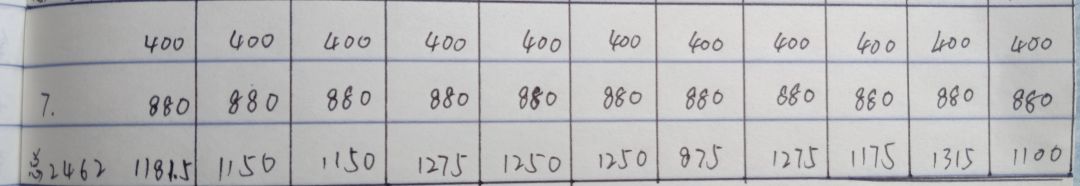 400 400 400 400 400 400 400 400 400 400 400
7. 880 880 880 880 880 880 880 880 880 880 880
总2462 1181.5 1150 1150 1275 1250 1250 875 1275 1175 1315 1100